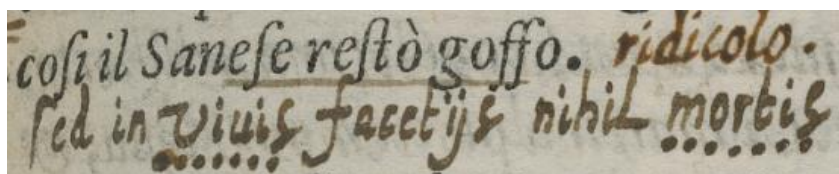 coſi il Saneſe reſtò goffo. ridicolo.
ſed in viuis facetijs nihil mortis